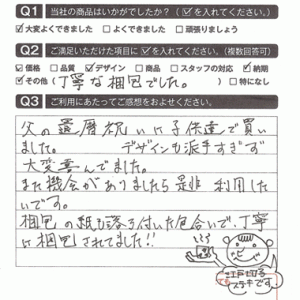 Q1 当社の商品はいかがでしたか？（✓を入れてください。）
☑大変よくできました □よくできました □頑張りましょう
Q2 ご満足いただけた項目に✓を入れてください。（複数回答可）
☑価格 □品質 ☑デザイン □商品 □スタッフの対応 ☑納期
☑その他（丁寧な梱包でした。） □特になし
Q3 ご利用にあたってご感想をおよせください。
父の還暦祝いに子供達で買い
ました。 デザインも派手すぎず
大変喜んでました。
また機会がありましたら是非 利用した
いです。
梱包の紙も落ち付いた色合いで、丁寧
に梱包されてました!!
江戸切子
ステキです